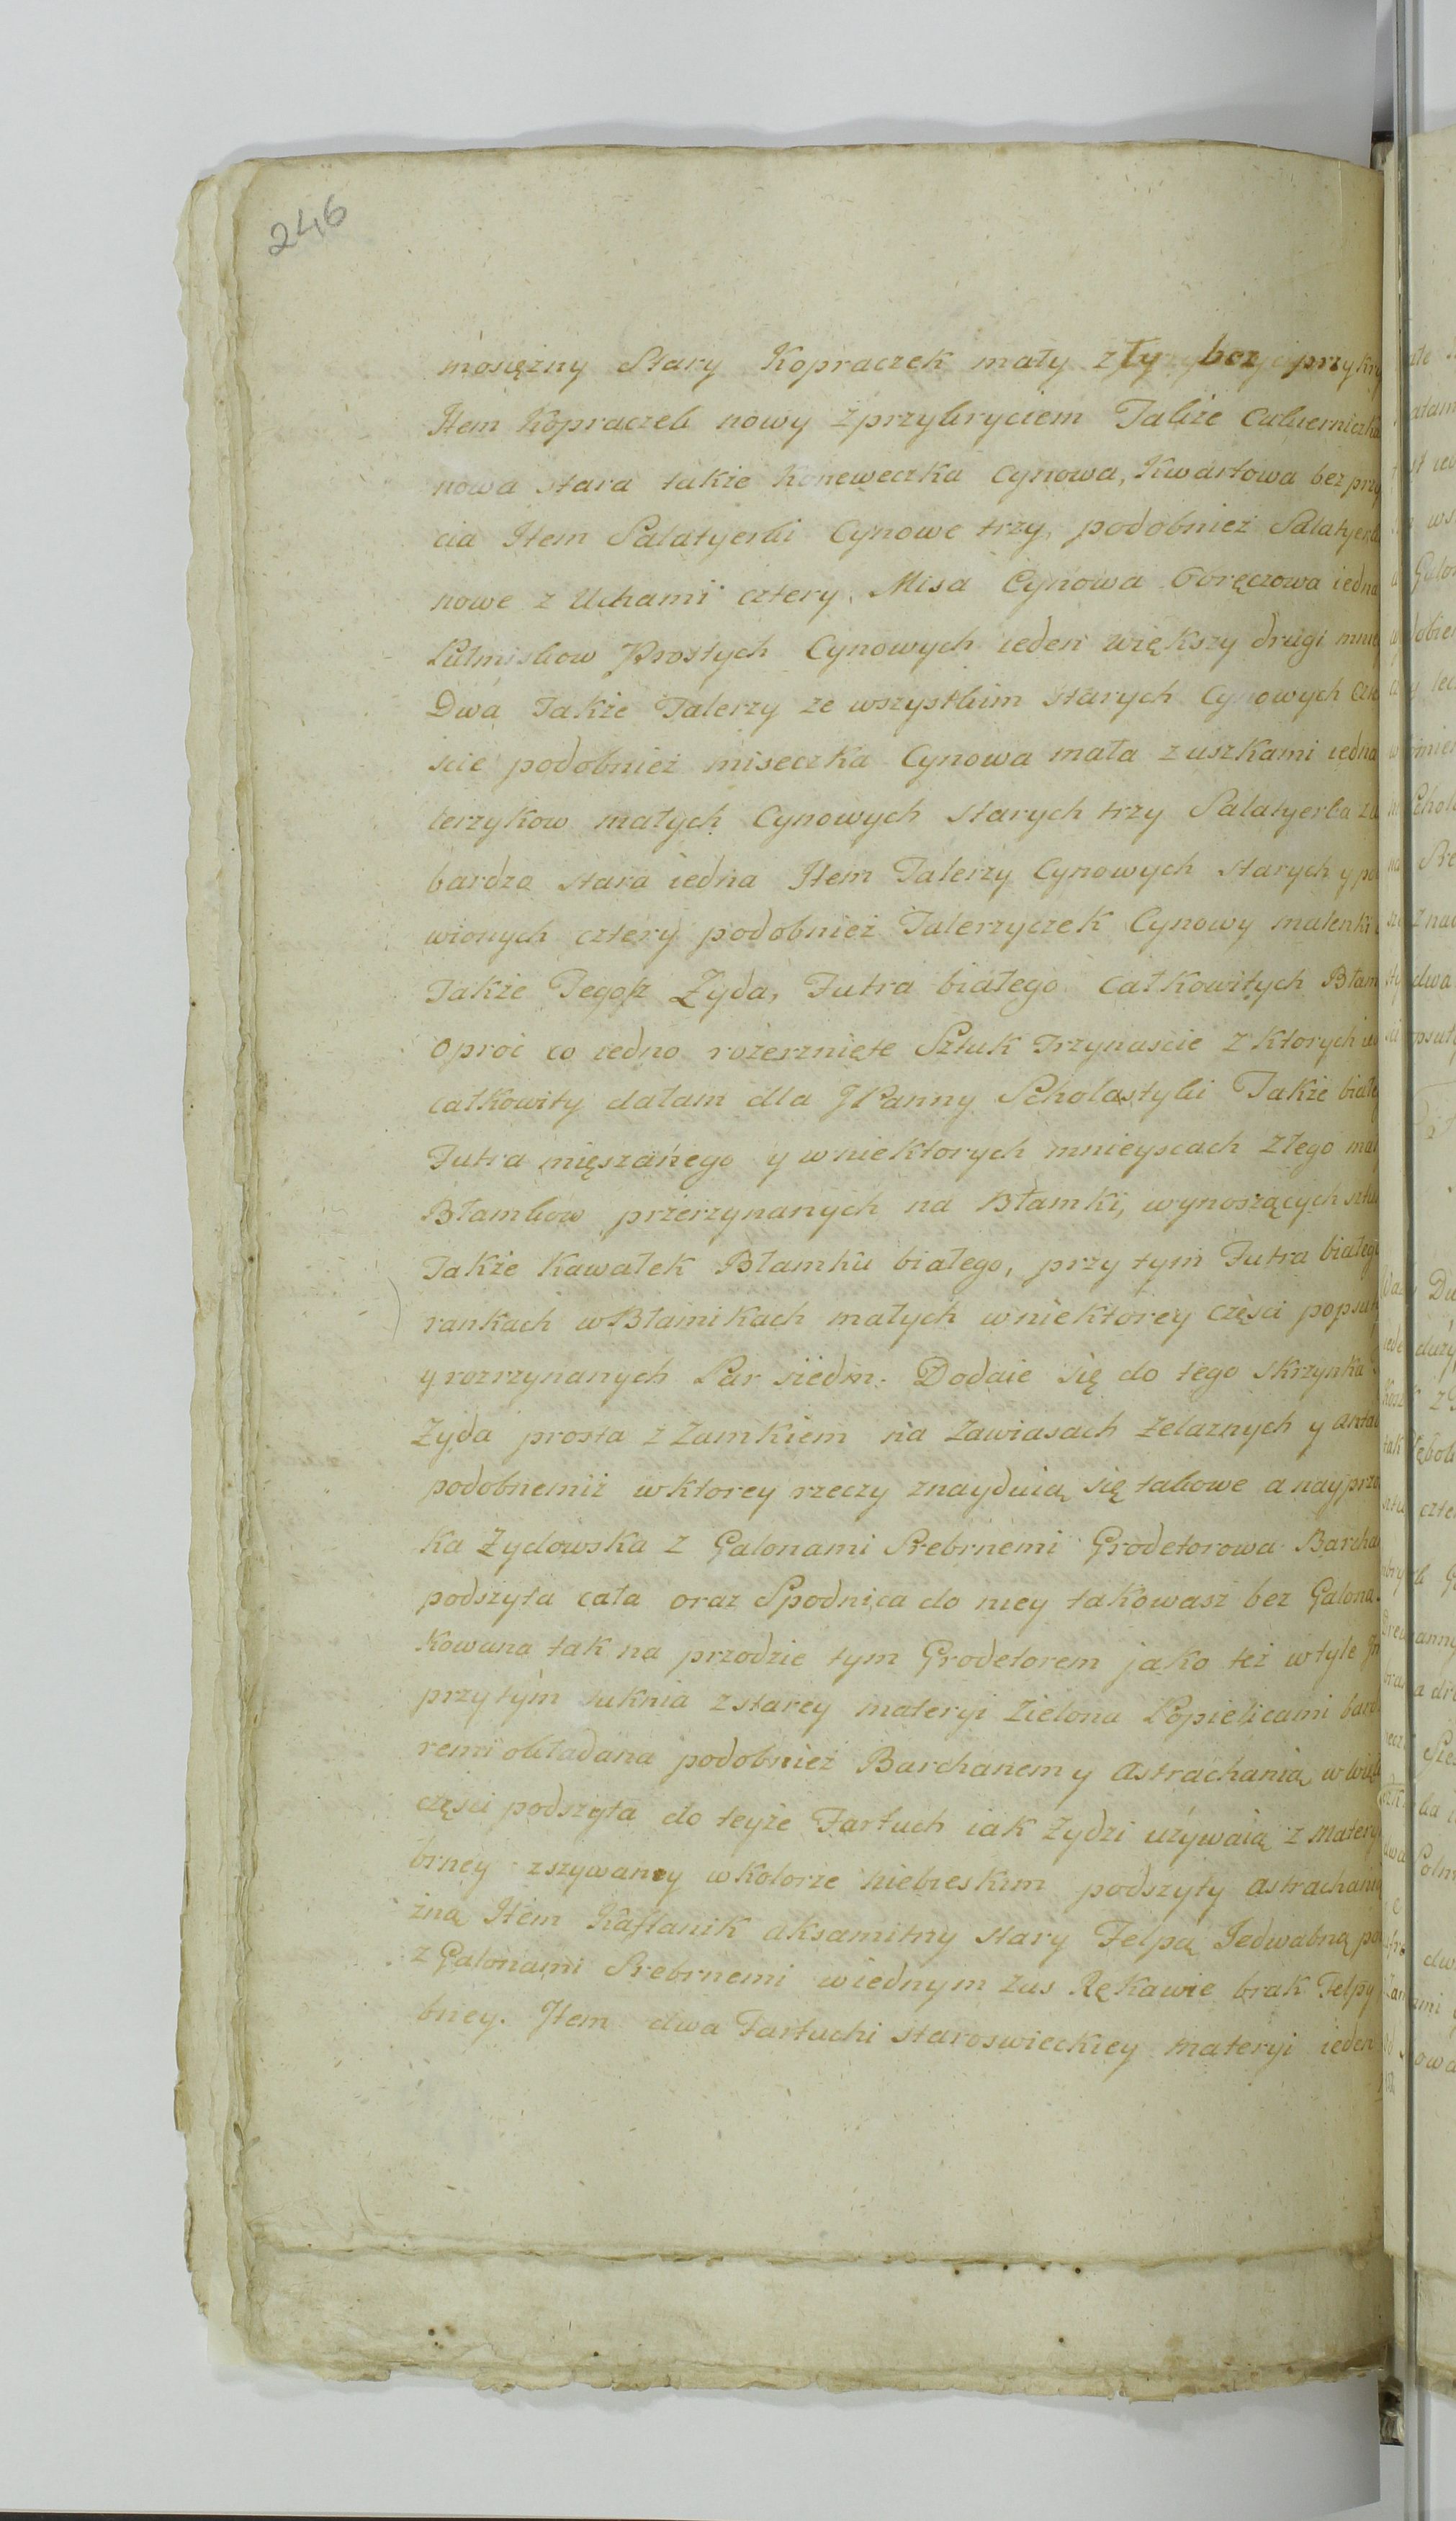 246
mosiężny Stary Kopraczek mały zły bez przykry
Item Kopraczek nowy z przykryciem Także Cukierniczka
nowa stara także Koneweczka Cynowa, Kwartowa bez przy
cia Item Salatyerki Cynowe trzy, podobnież Salatyerk
nowe z Uchami cztery. Misa Cynowa Obręczowa iedna
Pułmiskow Prostych Cynowych ieden większy drugi mniey
Dwa Także Talerzy ze wszystkim starych Cynowych czte
ście podobnież miseczka Cynowa mała z uszkami iedna
lerzykow małych Cynowych starych trzy Salatyerka zu
bardzo stara iedna Item Talerzy Cynowych starych y po
wionych cztery podobnież Talerzyczek Cynowy malenki
Także Tegoż Żyda, Futra białego całkowitych Błam
oproć co iedno rozerznięte Sztuk Trzynaście z ktorych ied
całkowity dałam dla JPanny Scholastyki Także białe
Futra mięszanego y w niektorych mnieyscach złego mał
Błamkow przerzynanych na Błamki, wynoszących sztu
Także Kawałek Błamku białego, przy tym Futra białego
rankach w Błamikach małych w niektorey części popsut
y rozrzynanych Par siedm. Dodaie się do tego skrzynka
Żyda prosta z Zamkiem na Zawiasach żelaznych y anta
podobnemiż w ktorey rzeczy znayduią się takowe a nayprzo
ka Żydowska z Galonami Srebrnemi Grodetorowa Barcha
podszyta cała oraz Spodnica do niey takowasz bez Galona
Kowana tak na przodzie tym Grodetorem jako też w tyle
przytym suknia z starey materyi zielona Popielicami bard
remi obkładana podobnież Barchanem y Astrachanią w więk
części podszyta do teyże Fartuch iak Żydzi używaią z Matery
brney zszywaney w kolorze niebieskim podszyty astrachanią
żną Item Kaftanik aksamitny stary Felpą Jedwabną po
z Galonami Srebrnemi w iednym zas Rękawie brak Felpy
bney. Item dwa Fartuchi staroswieckiey materyi ieden